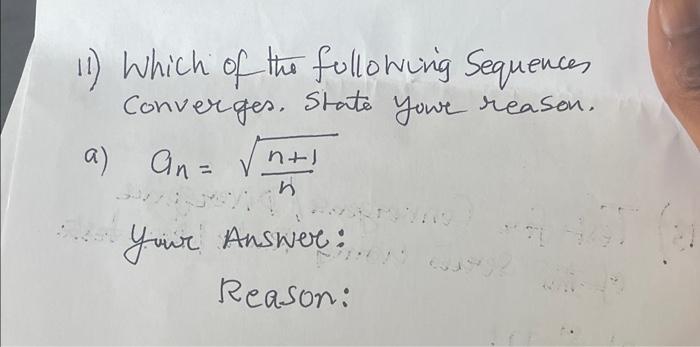 11) Which of the following Sequences
Converges. State your reason.
a) an = √(n+1/n)
Your Answer:
Reason: